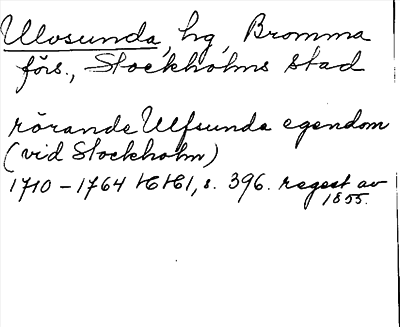 Ulvsunda, hg, Bromma
förs., Stockholms stad
rörande Ulfsunda egendom
(vid Stockholm)
1710-1764 HHI, s. 396. regest av
1855.